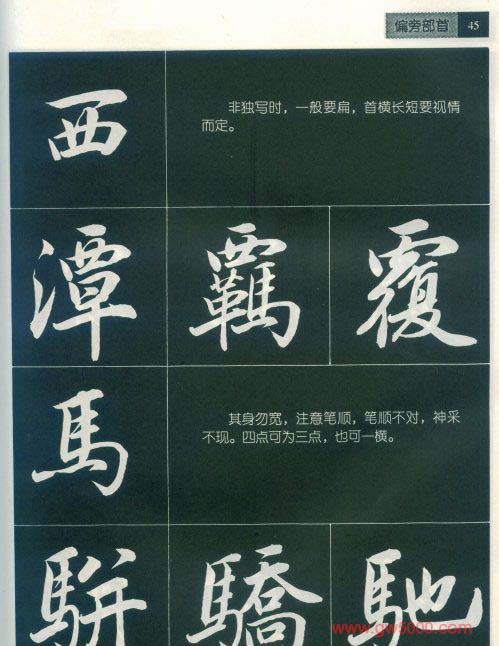 偏旁部首 45
西
非独写时，一般要扁，首横长短要视情
而定。
潭 羁 覆
馬
其身勿宽，注意笔顺，笔顺不对，神采
不现。四点可为三点，也可一横。
駢 驕 馳
www.gw8600.com